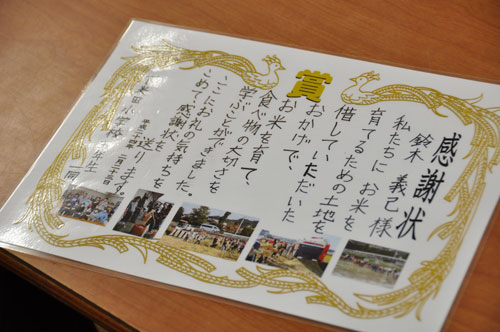 賞
感謝状
鈴木 義己様
私たちに お米を
育てるための土地を
借していただいた
おかげで、
お米を育て、
食べ物の大切さを
学ぶことができました。
ここにお礼の気持ちを
こめて、感謝状を
送ります。